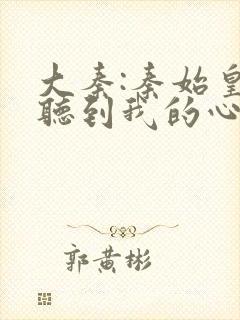 大秦:秦始皇
聽到我的心
郭黄彬